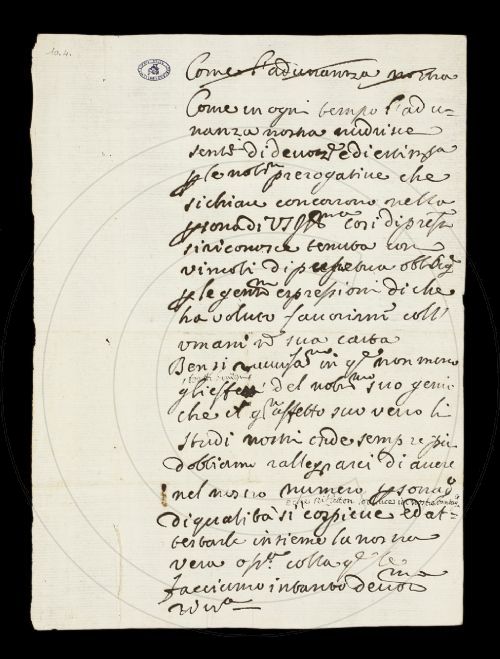 10. 4.
Come l'adunanza nostra
Come in ogni tempo l'adu-
nanza nostra nudrisce
sentᵗⁱ di devozᵉ e di estima
prerogative che
si chiare concorrono nella
psona di VS Illᵐᵃ così di presᵗᵉ
si riconosce tenuta con
vincoli di perpetua obbligᵉ
p le gentᵐᵉ espressioni di che
ha voluto favorirmi coll'
umanᵐᵃ sua carta
Bensì in qᵗᵃ non meno
gli effetti del nobᵐᵒ suo genio
che il affetto suo verso li
studi nostri onde sempre più
dobbiamo rallegrarci di avere
nel nostro numero psonag
di qualità sì cospicue ed at-
testarle insieme la nostra
vera colla qᵉ le
facciamo intanto devot
rivᵃ